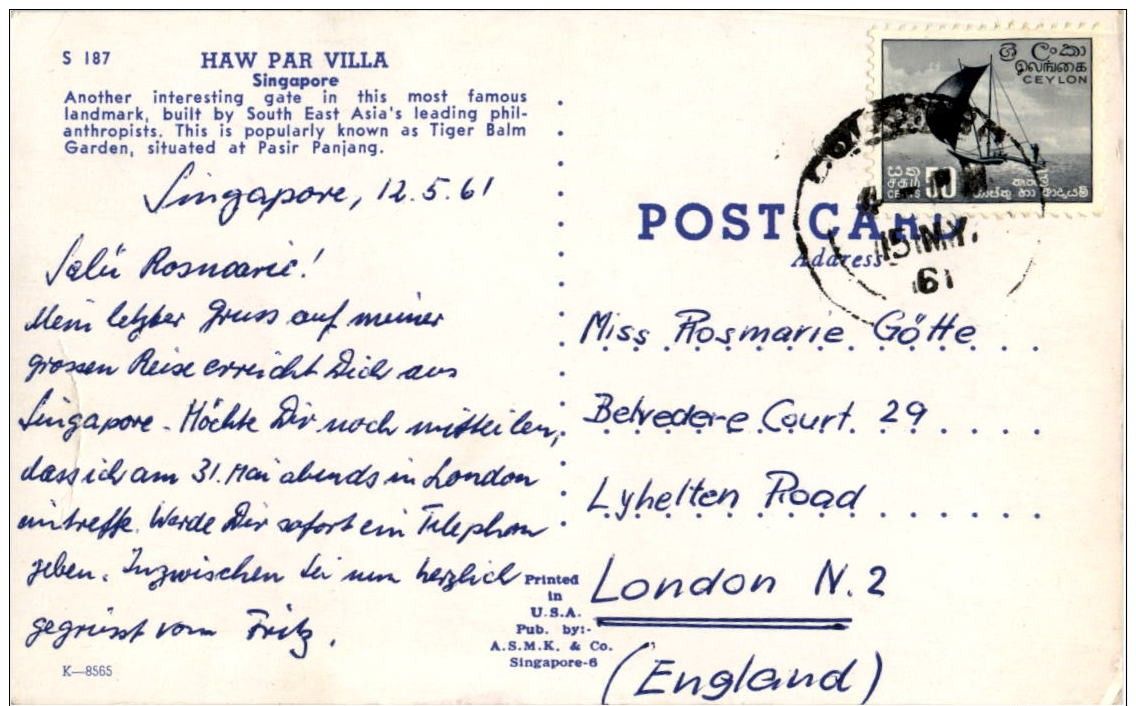 S 187
HAW PAR VILLA
Singapore
Another interesting gate in this most famous
landmark, built by South East Asia's leading phil-
anthropists. This is popularly known as Tiger Balm
Garden, situated at Pasir Panjang.
Singapore, 12.5.61
Salü Rosmarie!
Mein letzter Gruss auf meiner
grossen Reise erreicht Dich aus
Singapore. Möchte Dir noch mitteilen,
dass ich am 31. Mai abends in London
eintreffe. Werde Dir sofort ein Telephon
geben. Inzwischen sei nun herzlich
gegrüsst vom Fritz.
K—8565
Printed
in
U.S.A.
Pub. by:-
A.S.M.K. & Co.
Singapore-6
ශ්‍රී ලංකා
இலங்கை
CEYLON
සත
சதம்
CENTS 50
POST CARD
Address
15 MY.
61
Miss Rosmarie Götte
Belvedere Court 29
Lyhelten Road
London N.2
(England)